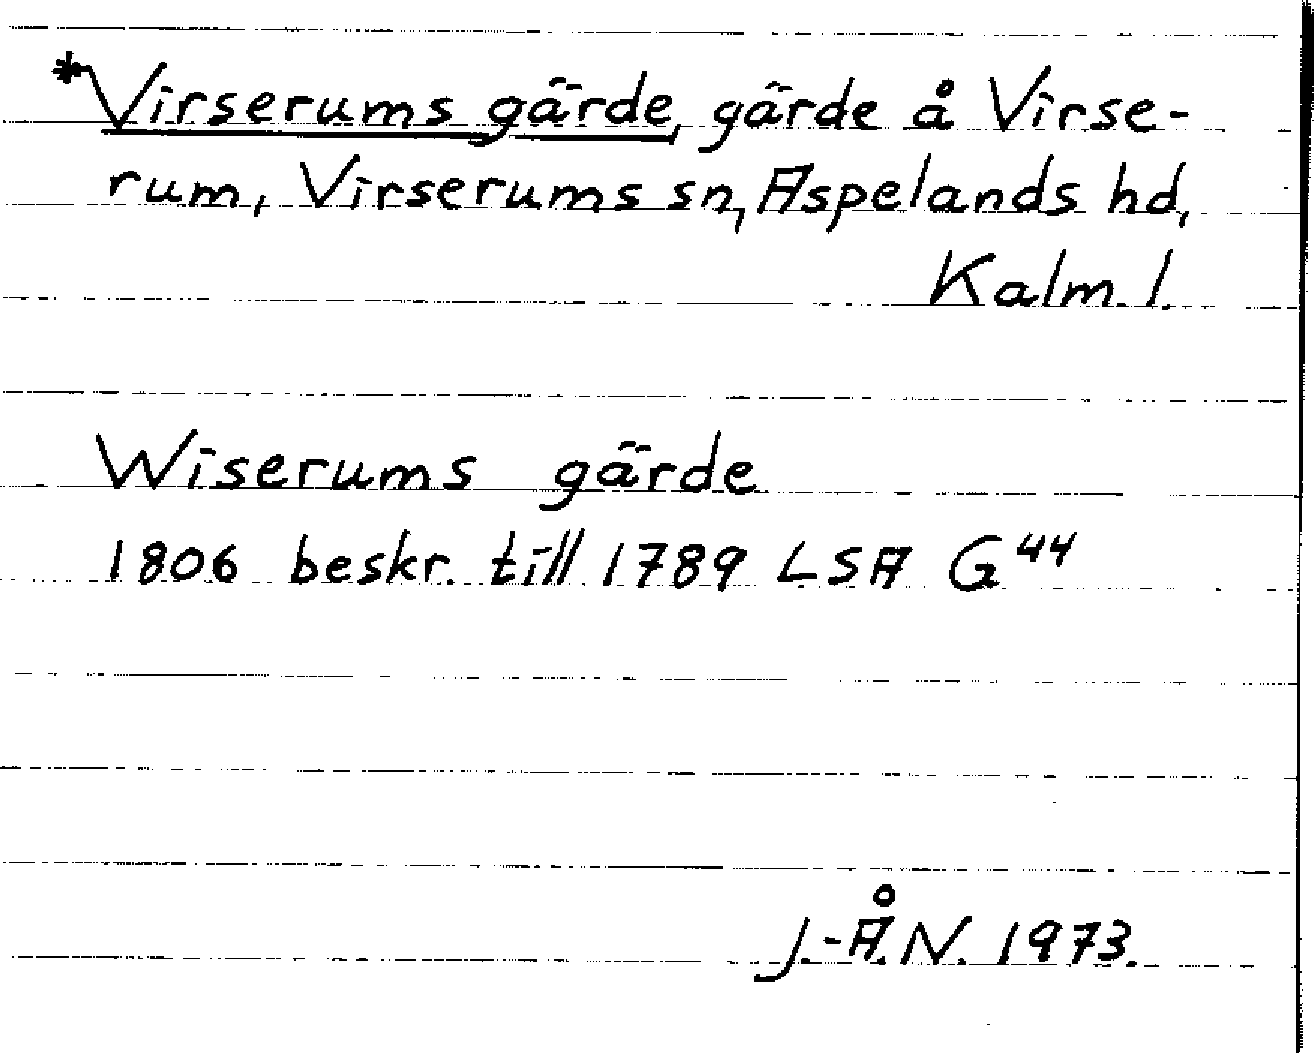 *Virserums gärde, gärde å Virse-
rum, Virserums sn, Aspelands hd,
Kalm. l.
Wiserums gärde
1806 beskr. till 1789 LSA G44
J.-Å.N. 1973.